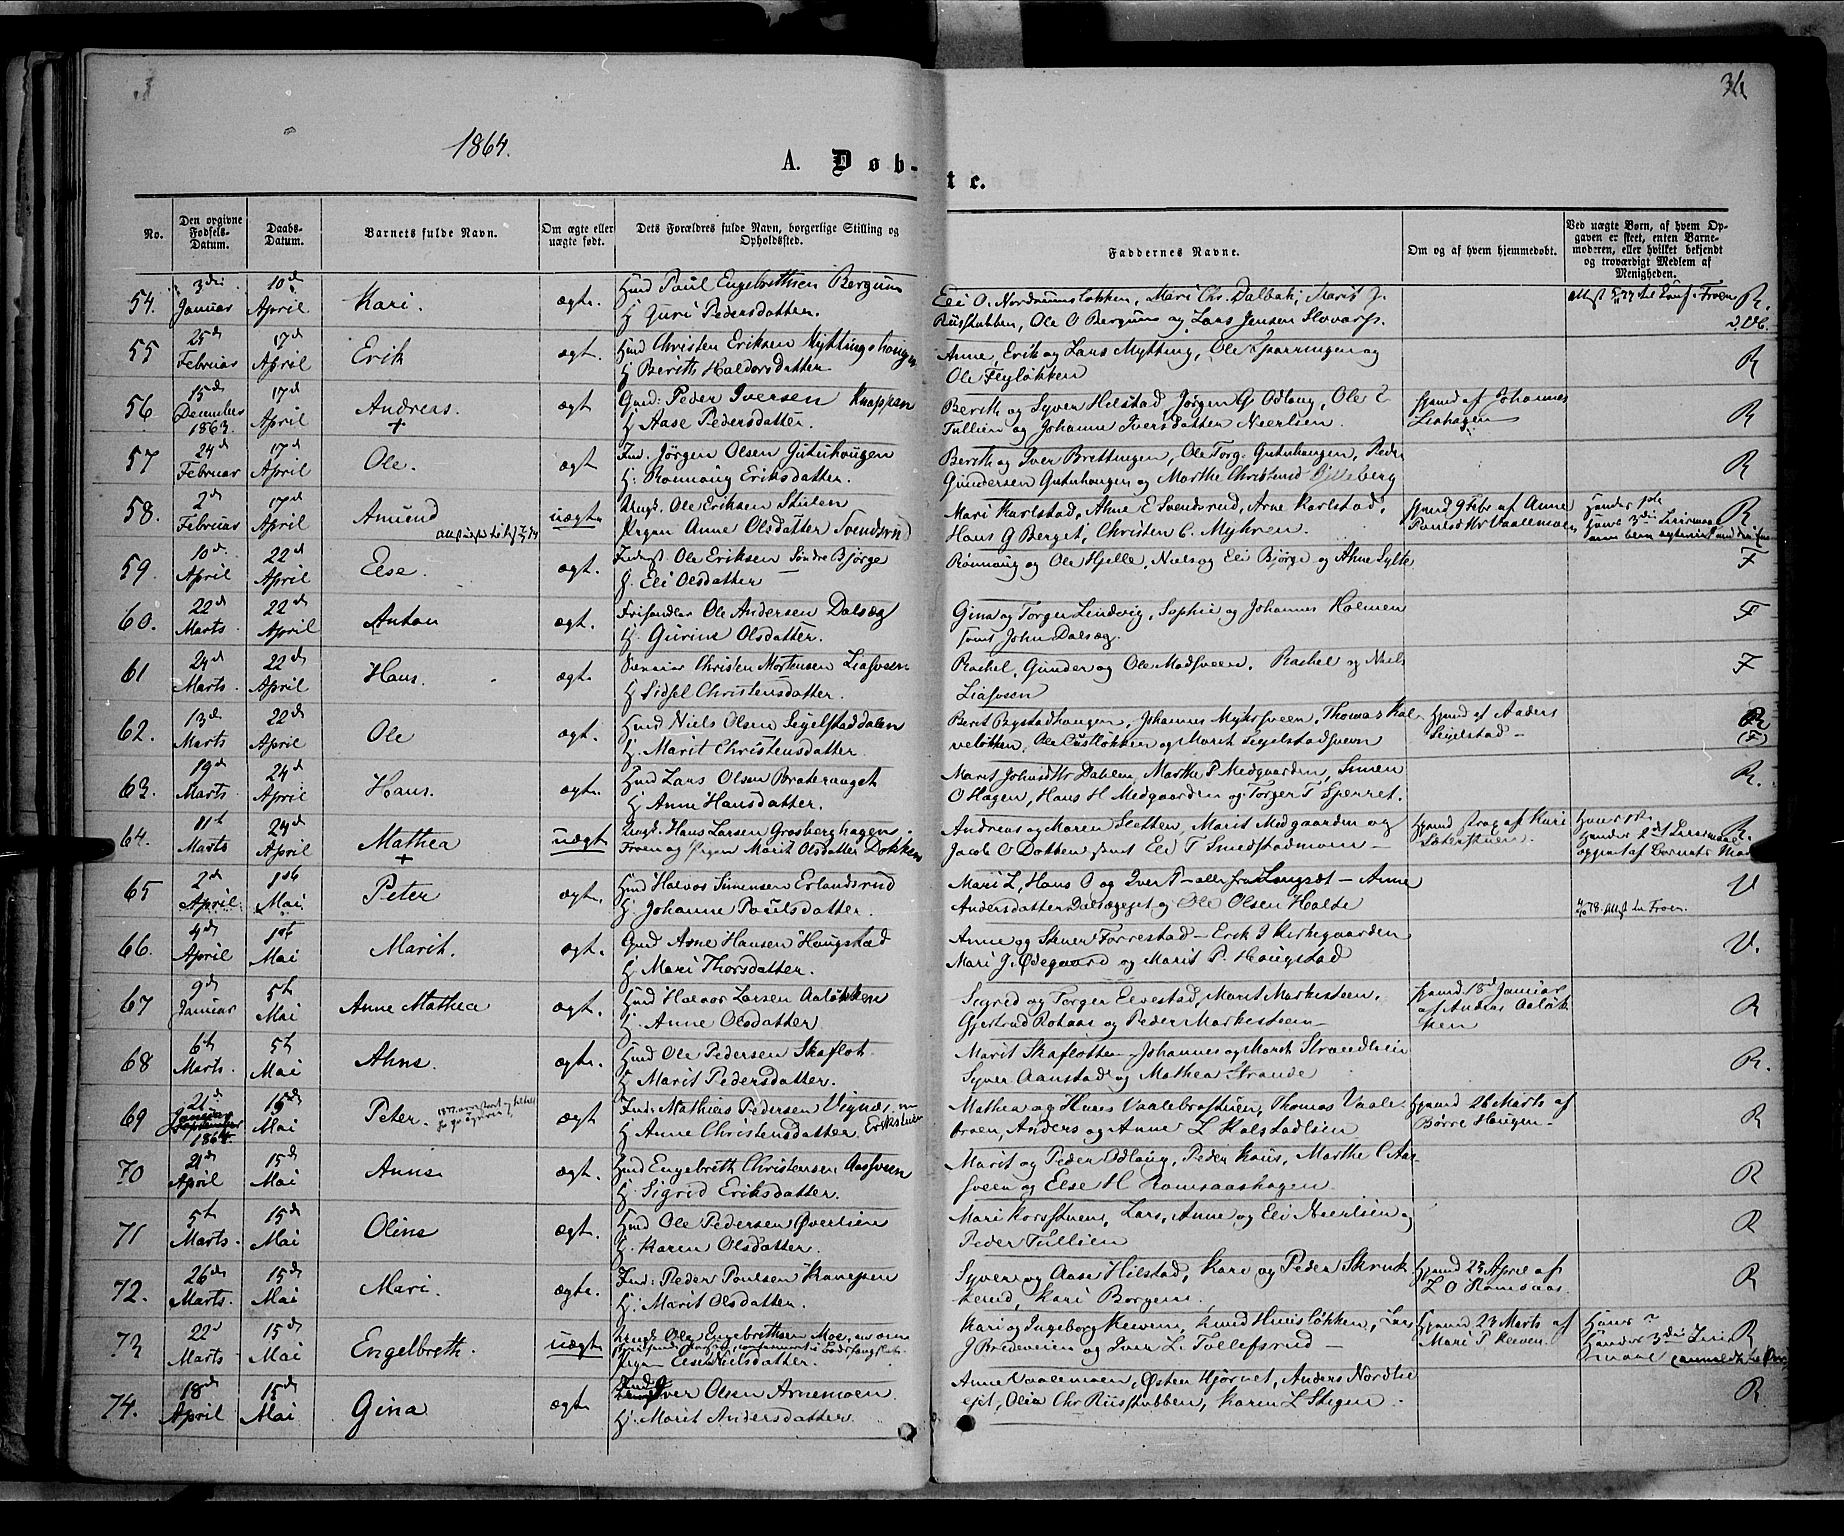 36
1864.
A. Døb-
te.
No.
Den opgivne Fødsels-Datum.
Daabs-Datum.
Barnets fulde Navn.
Om ægte eller uægte født.
Dets Forældres fulde Navn, borgerlige Stilling og Opholdssted.
Faddernes Navne.
Om og af hvem hjemmedøbt.
Ved uægte Børn, af hvem Op-
gaven er skeet, enten Barne-
moderen, eller hvilket bekjendt
og troværdigt Medlem af
Menigheden.
54. 3die Januar 10de April Kari. ægte.
Hmd Paul Engebrethsen Bergum
H Guri Pedersdatter.
Eli O. Nordrumsløkken, Mari Chr. Dalbak, Marit J.
Riisstubben, Ole O Bergum og Lars Jensen
R.
55 25de Februar 17de April Erik ægt.
Hmd Christen Eriksen Myttingshougen
H Berith Haldorsdatter
Anne, Erik og Lars Mytting, Ole Sparringen og
Ole Flyløkken
R
56 15de December 1863. 17de April Andreas. + ægt
Gmd: Peder Iversen Knappen
H Aase Pedersdatter.
Berith og Syver Hilstad, Jørgen G Odlaug, Ole E
Tullien og Johanne Iversdatter Neerlien.
hjemd af Johannes
Liahagen
R
57 24de Februar 17de April Ole. ægt
Ind. Jørgen Olsen Gutuhougen
H. Rønnoug Eriksdatter.
Berith og Iver Brettingen, Ole Torg. Gutuhougen, Peder
Gundersen Gutuhougen og Marthe Christensd
R
58. 2de Februar 17de April Amund uægte
Ungk. Ole Eriksen Stulen
Pigen Anne Olsdatter Svendsrud
Mari Karlstad, Ahne E Svendsrud, Arne Karlstad,
Hans G Berget, Christen C. Myhren.
hjemd 9 Febr af Anne
Paulsdtr Vaalemoen
Hendes 1ste
Hans 3die Leiermaal
R
59. 10de April 22de April Else. ægt.
Ole Eriksen Søndre Bjørge
H. Eli Olsdatter
Rønnoug og Ole Hjelle, Niels og Eli Bjørge og Ahne Sylte
F
60. 22de Marts. 22de April Anton ægt.
Ole Andersen Dalsæg
H. Gurine Olsdatter.
Gina og Torger Lindvig, Sophie og Johannes Holmen
samt John Dalsæg.
F
61 24de Marts. 22de April Hans. ægt.
Christen Mortensen Liasveen
H Sidsel Christensdatter.
Rachel, Gunder og Ole Modsveen. Rachel og Niels
Liasveen
F
62. 13de Marts. 22de April Ole ægt.
Hmd Niels Olsen Seielstaddalen
H. Marit Christensdatter.
Berit Rystadhaugen, Johannes Myksveen, Thomas Kal-
veløkken, Ole og Marit Seielstadsveen
hjemd af Anders
Seielstad -
R
(F)
63. 19de Marts. 24de April Hans. ægte.
Hmd Lars Olsen Braateranget
H Anne Hansdatter.
Marit Johnsdtr Dahlen, Marthe P Medgaarden, Simen
O Hagen, Hans H Medgaarden og Torger T Sperret.
R.
64. 11te Marts 24de April Mathea + uægt
Ungk. Hans Larsen Grosberghagen.
Froen og Pigen Marit Olsdatter Dokken
Andreas og Maren Sletten, Marit Medgaarden og
Jacob O Dokken samt Eli T Smedstadmoen -
hjemd strax af Kari
Sæterstuen.
Hans 1ste
Hendes 2det Leiermaal
opgivet af Barnets Moder
R
65 2de April. 1ste Mai Peter ægte.
Hmd Halvor Simensen Erlandsrud
H. Johanne Poulsdatter.
Mari L, Hans O og Iver P - alle fra - Anne
Andersdatter Dalsæget og Ole Olsen Holte
V
66. 4de April 1ste Mai Marit. ægt.
Gmd Arne Hansen Haugstad
H Mari Thorsdatter.
Anne og Stener Forrestad - Erik J Kirkegaarden
Mari J. Ødegaard og Marit P. Haugstad
V.
67 9de Januar 5te Mai Anne Mathea ægt.
Hmd Halvor Larsen Aaløkken
H. Anne Olsdatter
Sigrid og Torger Elvestad, Marit Markesteen,
Gjertrud Rohaas og Peder Markesteen -
hjemd 18de Januar
af Anders Aaløk-
ken
R
68 6te Marts. 5te Mai Ahne. ægte.
Hmd Ole Pedersen Skaflot.
H Marit Pedersdatter.
Marit Skaflotten Johannes og Marit Strandlien
Syver Aanstad og Mathea Strande
R.
69 21de Januar 1864 15de Mai Peter. ægt
Ind: Mathias Pedersen Vignæs
H Anne Christensdatter Erikstuen
Mathea og Hans Vaalebrostuen, Thomas Vaale-
broen, Anders og Anne L Kolstadlien
hjemd 26 Marts af
Børre Haugen -
R
70 21de April 15de Mai Anne ægt.
Hmd Engebreth Christensen Aassveen
H. Sigrid Eriksdatter.
Marit og Peder Odlaug, Peder Kruus, Marthe C Aas-
sveen og Else H Romsaashagen.
R
71 5te Marts. 15de Mai Oline ægt.
Hmd Ole Pedersen Øverlien
H. Karen Olsdatter.
Mari Korsstuen, Lars, Anne og Eli Neerlien og
Peder Tullien
R
72. 26de Marts. 15de Mai Mari. ægte.
Ind: Peder Poulsen Kanepen
H. Marit Olsdatter.
Syver og Aase Hilstad, Kari og Peder Skruk-
kerud, Kari Borgen.
hjemd 23 April af
L O Romsaas.
R
73 22d Marts 15de Mai Engelbreth. uægt
Ungk. Ole Engebrethsen Moe
Pigen Else Nielsdatter.
Kari og Ingeborg Kleven, Knud Huusløkken, Lars
J Bredeveien og Iver L. Tollefsrud -
hjemd 23 Marts af
Mari P Kleven.
Hans ?
Hendes 3die
R
74. 18de April 15de Mai Gina ægt
Iver Olsen Arnemoen
H. Marit Andersdatter.
Anne Vaalemoen, Østen Hjørnet, Anders Nordli-
ejet, Olia Chr Riisstubben, Karen L Stigen.
R